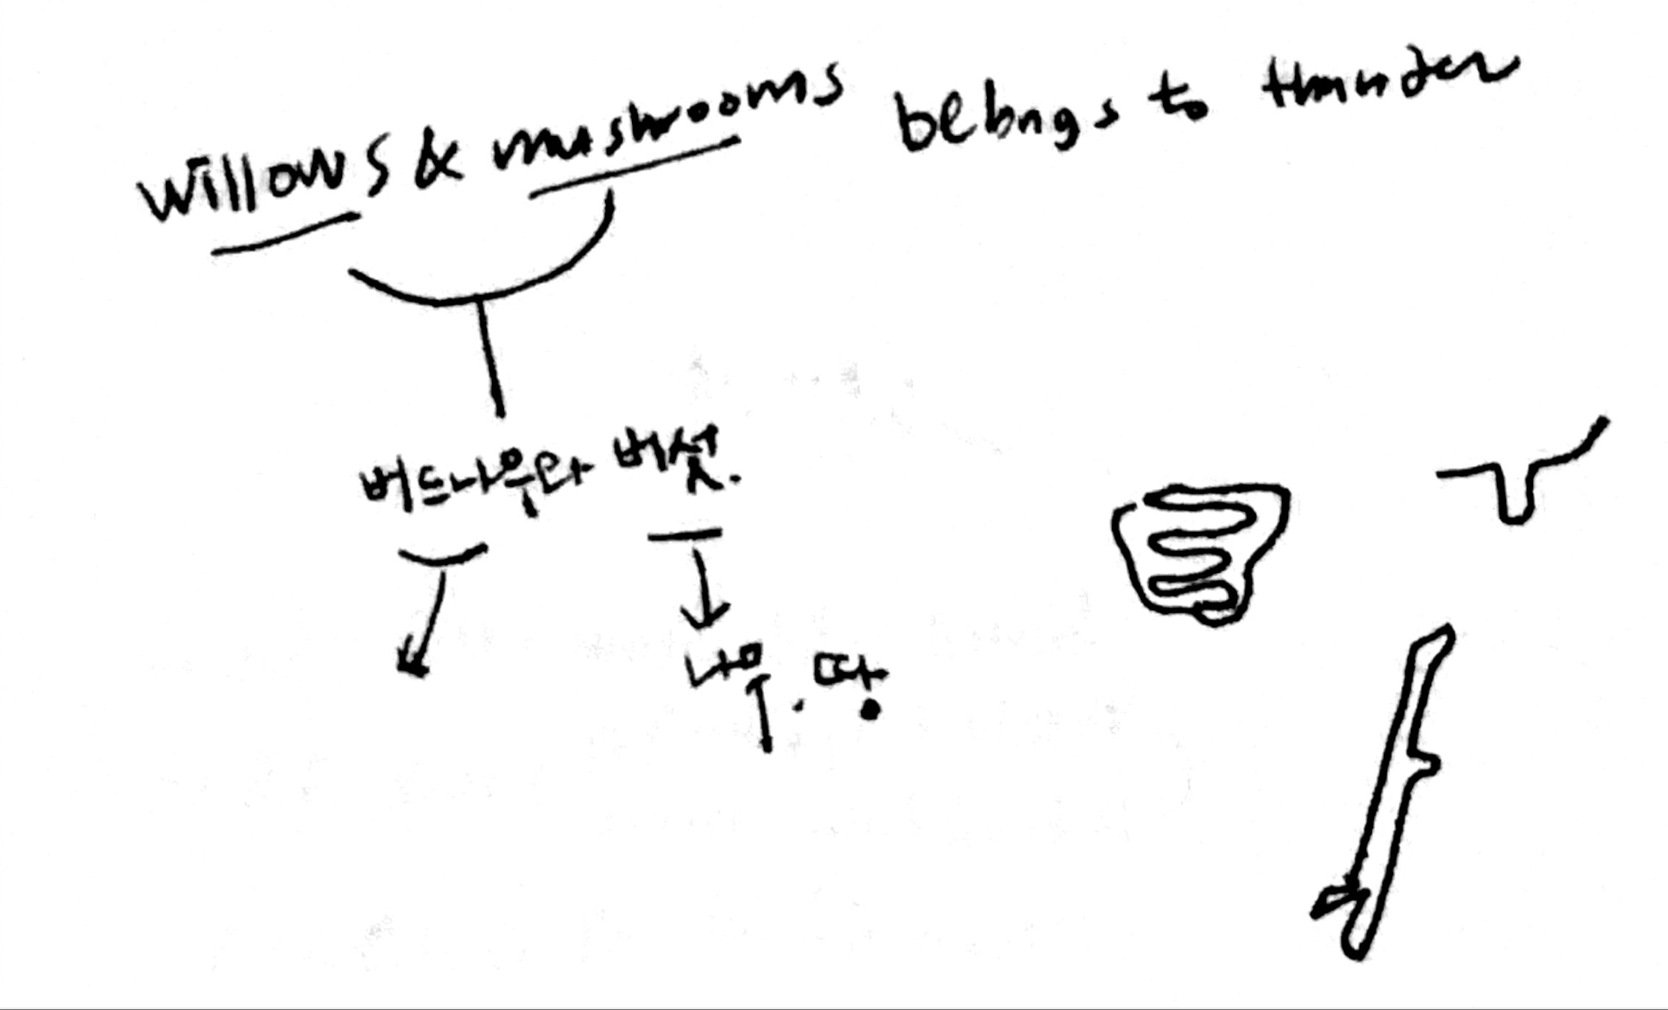 willows & mushrooms belongs to thunder
버드나무와 버섯.
나무. 땅